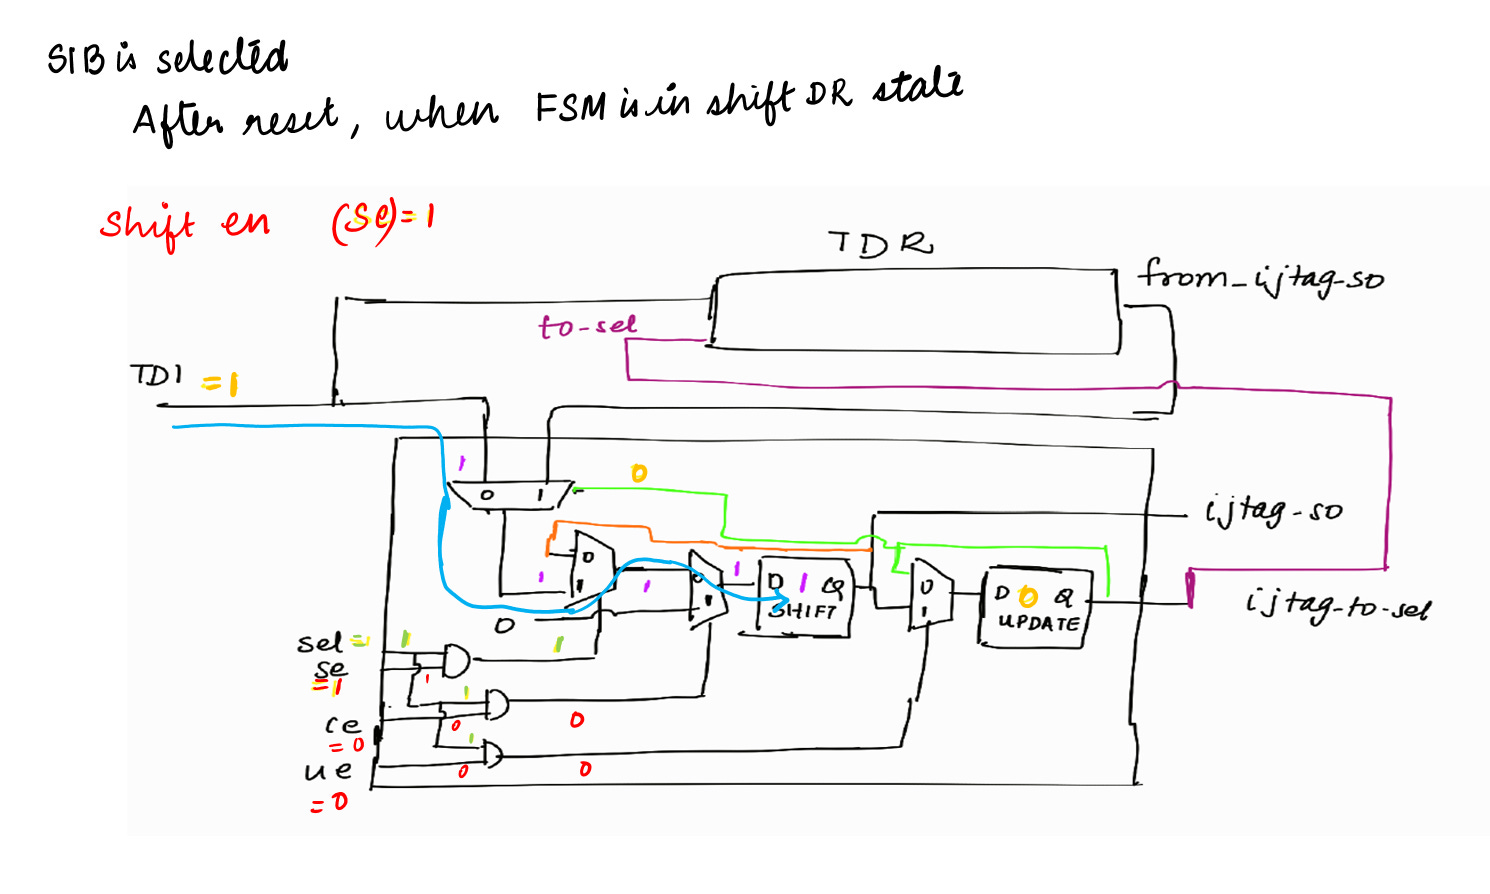 SIB is selected
After reset, when FSM is in shift DR state
Shift en (se)=1
TDR
from_ijtag-so
to-sel
TDI =1
1
0
0 1
ijtag-so
0
1
1
1
1
0
1
D 1 Q
SHIFT
0
1
D 0 Q
UPDATE
ijtag-to-sel
0
sel=1
1
1
se
=1
1
1
ce
=0
0
0
1
ue
=0
0
0